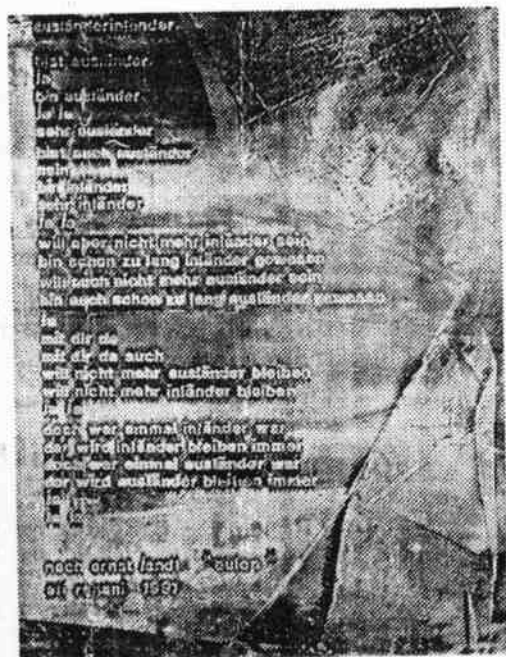 ausländerinländer
bist ausländer
ja
bin ausländer
ja ja
sehr ausländer
bist auch ausländer
nein
bin inländer
sehr inländer
ja ja
will aber nicht mehr inländer sein
bin schon zu lang inländer gewesen
will auch nicht mehr ausländer sein
bin auch schon zu lang ausländer gewesen
ja
mit dir da
mit dir da auch
will nicht mehr ausländer bleiben
will nicht mehr inländer bleiben
ja ja
doch wer einmal inländer war
der wird inländer bleiben immer
doch wer einmal ausländer war
der wird ausländer bleiben immer
ja ja
ja ja
nach ernst jandl
1991